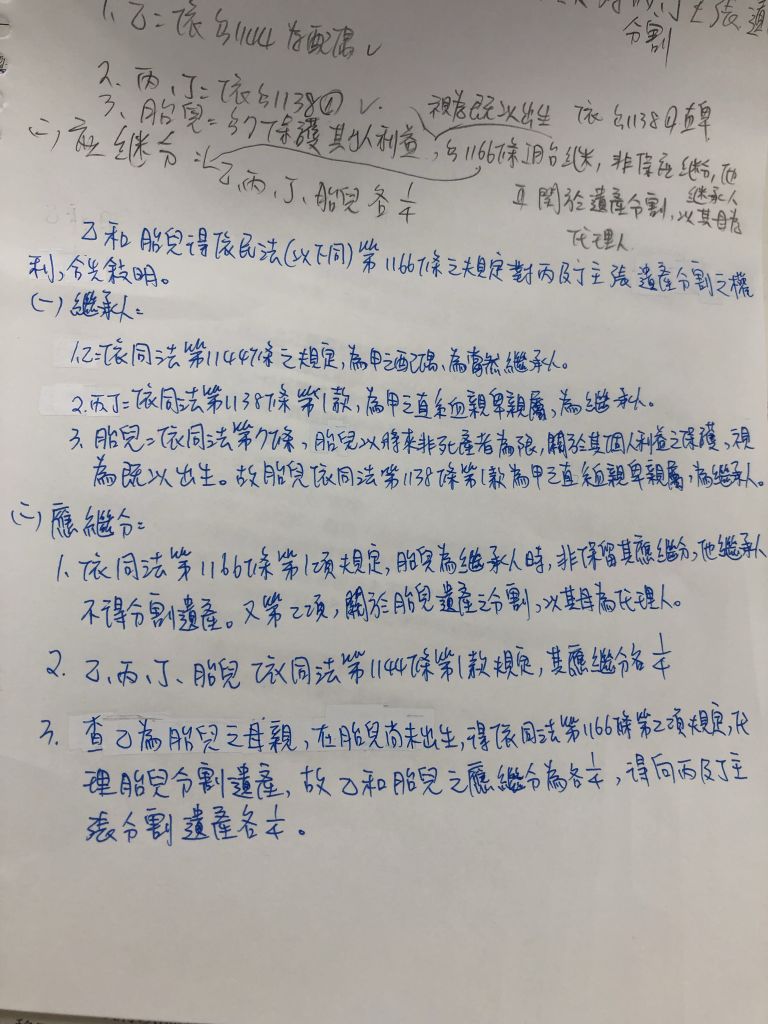 主張遺
分割
1. 乙:依§1144為配偶✓
2. 丙、丁:依§1138① ✓.
3. 胎兒:§7條護其個人利益,視為既以出生 依§1138①直卑
§1166條I胎繼,非保應繼份,他繼承人
II關於遺產分割,以其母為代理人
(二)應繼分:乙、丙、丁、胎兒各1/4
乙和胎兒得依民法(以下同)第1166條之規定對丙及丁主張遺產分割之權
利,合先敘明。
(一)繼承人:
1.乙:依同法第1144條之規定,為甲之配偶、為當然繼承人。
2.丙丁:依同法第1138條第1款,為甲之直系血親卑親屬,為繼承人。
3. 胎兒:依同法第7條,胎兒以將來非死產者為限,關於其個人利益之保護,視
為既以出生。故胎兒依同法第1138條第1款為甲之直系血親卑親屬,為繼承人。
(二)應繼分:
1. 依同法第1166條第1項規定,胎兒為繼承人時,非保留其應繼分,他繼承人
不得分割遺產。又第2項,關於胎兒遺產之分割,以其母為代理人。
2. 乙、丙、丁、胎兒依同法第1144條第1款規定,其應繼分各1/4
3. 查乙為胎兒之母親,在胎兒尚未出生,得依同法第1166條第2項規定,代
理胎兒分割遺產,故乙和胎兒之應繼分為各1/4,得向丙及丁主
張分割遺產各1/4。